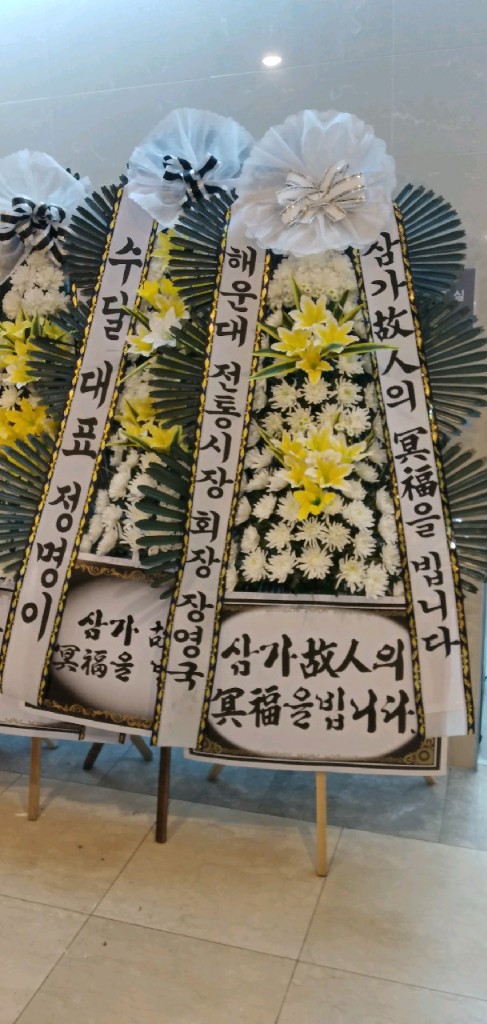 수달 대표 정명이
삼가 故
冥福을
해운대 전통시장 회장 장영국
삼가故人의 冥福을 빕니다
삼가故人의
冥福을빕니다.
실